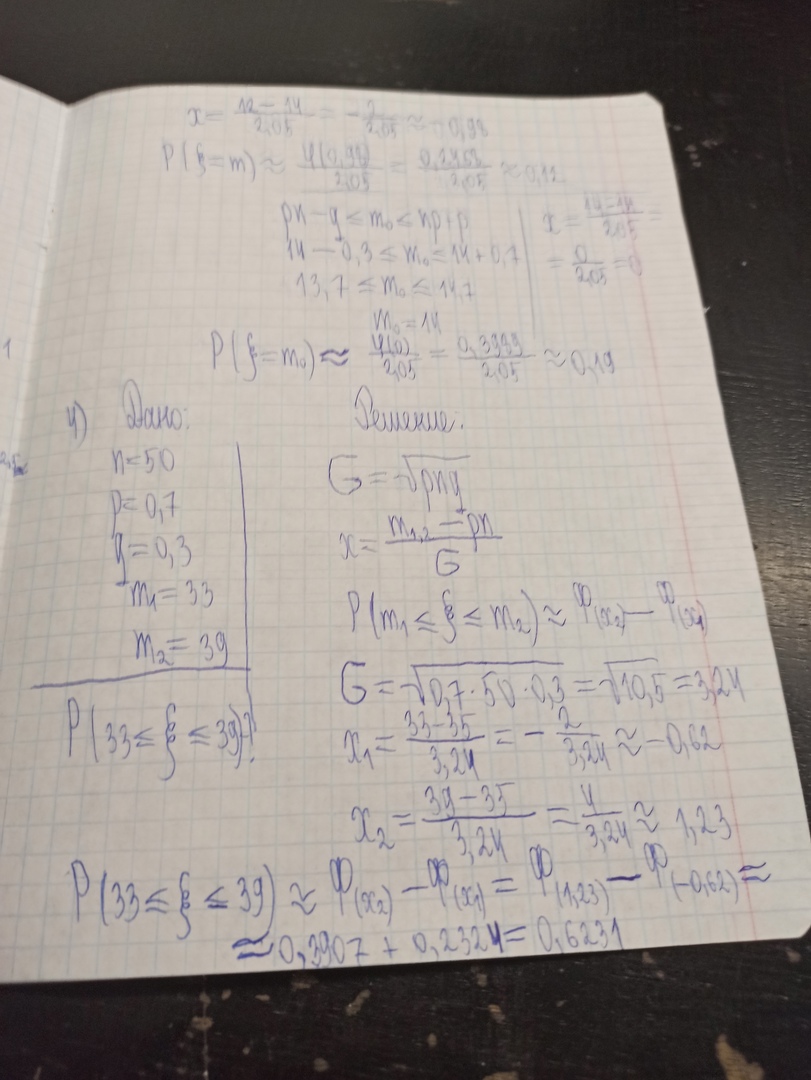 x = (12 − 14)/2,05 = −2/2,05 ≈ −0,98
P(ξ=m) ≈ φ(0,98)/2,05 = 0,2468/2,05 ≈ 0,12
pn − q ≤ m₀ ≤ np + p
14 − 0,3 ≤ m₀ ≤ 14 + 0,7
13,7 ≤ m₀ ≤ 14,7
m₀ = 14
x = (14 − 14)/2,05 =
= 0/2,05 = 0
P(ξ=m₀) ≈ φ(0)/2,05 = 0,3989/2,05 ≈ 0,19
4) Дано:
n = 50
p = 0,7
q = 0,3
m₁ = 33
m₂ = 39
P(33 ≤ ξ ≤ 39)-?
Решение:
G = √pnq
x = (m₁,₂ − pn)/G
P(m₁ ≤ ξ ≤ m₂) ≈ Ф(x₂) − Ф(x₁)
G = √0,7·50·0,3 = √10,5 = 3,24
x₁ = (33−35)/3,24 = −2/3,24 ≈ −0,62
x₂ = (39−35)/3,24 = 4/3,24 ≈ 1,23
P(33 ≤ ξ ≤ 39) ≈ Ф(x₂) − Ф(x₁) = Ф(1,23) − Ф(−0,62) ≈
≈ 0,3907 + 0,2324 = 0,6231